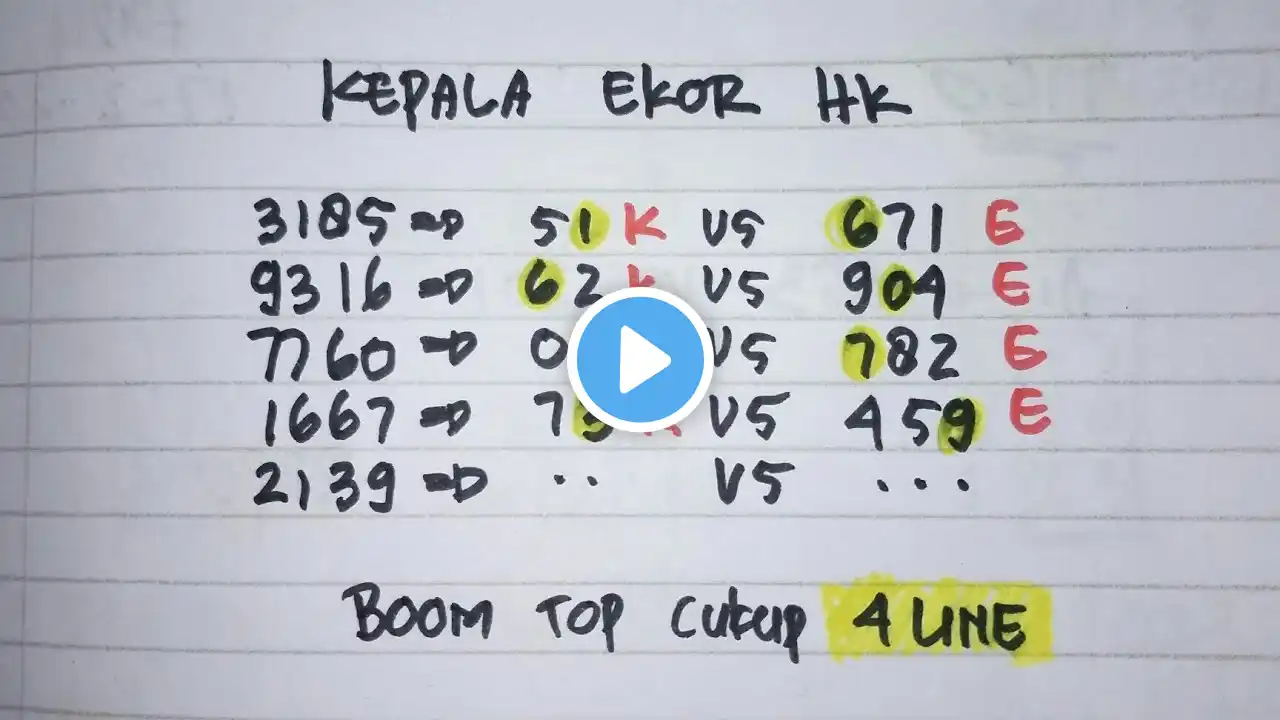 KEPALA EKOR HK
3185 => 51 K VS 671 E
9316 => 62 K VS 904 E
7760 => 0 VS 782 E
1667 => 79 K VS 459 E
2139 => .. VS ...
BOOM TOP CUKUP 4 LINE